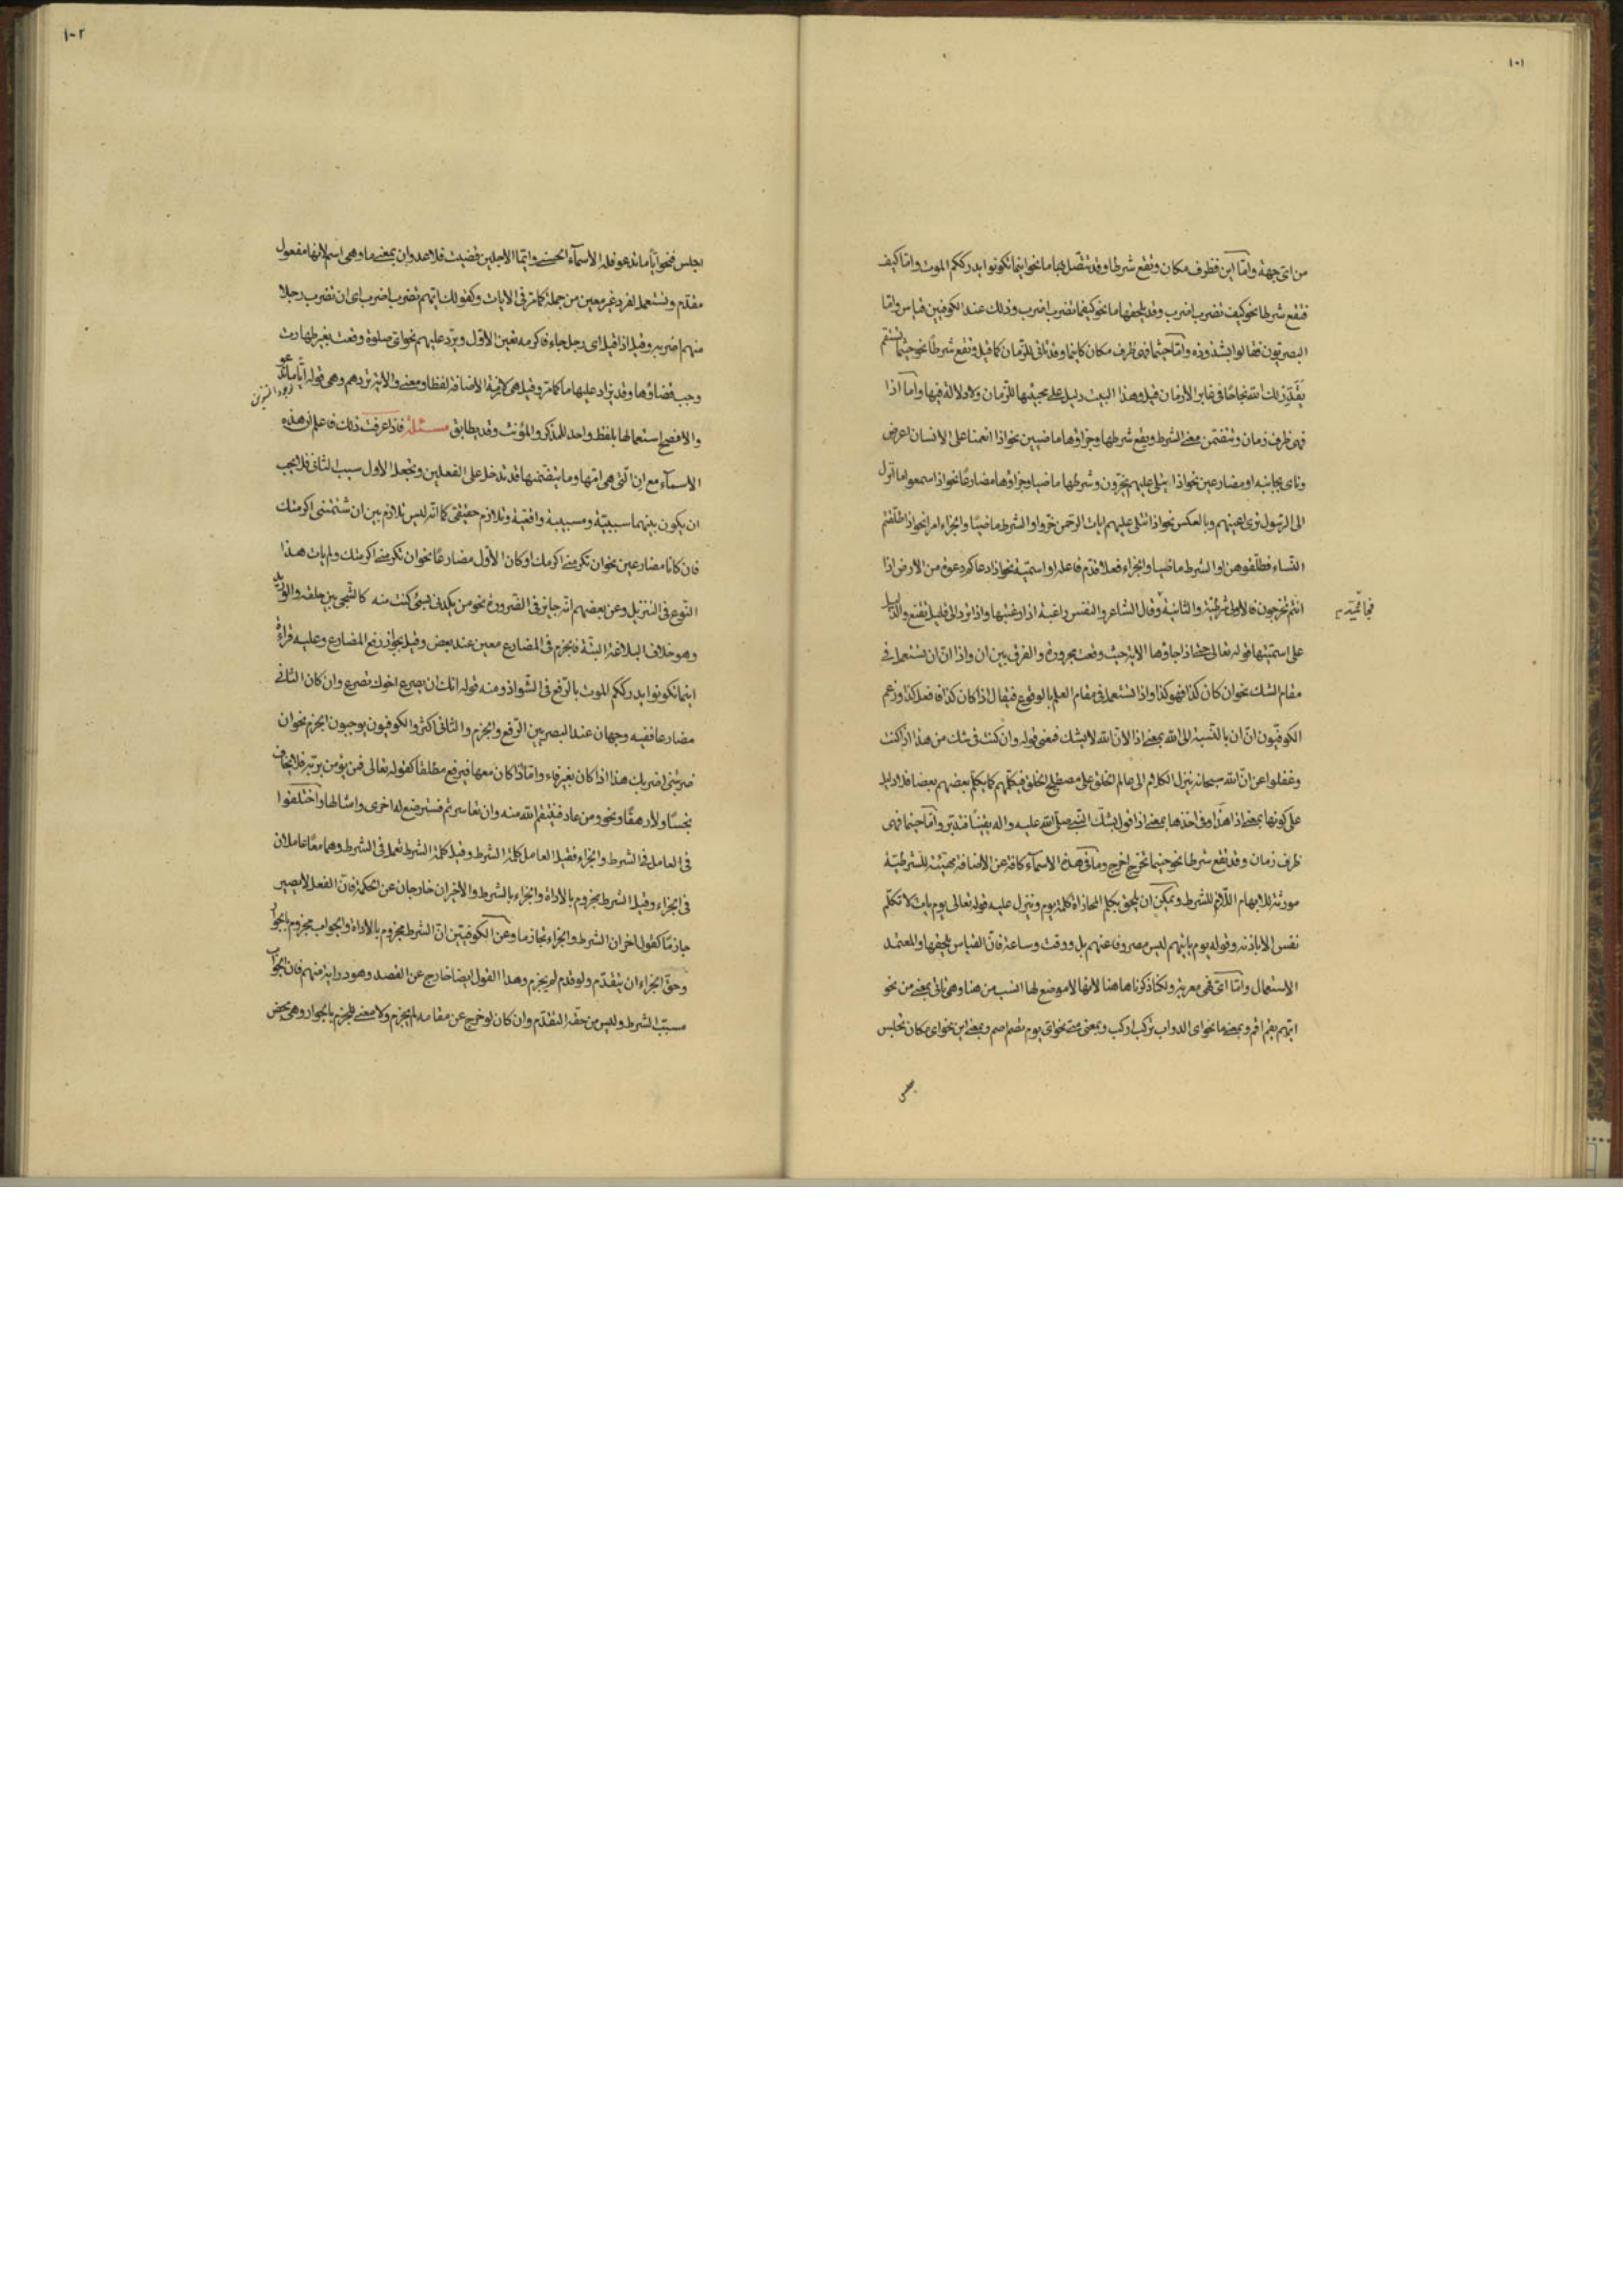 ١٠١
من اى جهة واما اين فظرف مكان وتقع شرطا وقد تتصل بها ما نحو اينما تكونوا يدرككم الموت واما كيف
فتقع شرطا نحو كيف تضرب اضرب وقد يلحقها ما نحو كيفما تضرب اضرب وذلك عند الكوفيين قياس واما
البصريون فقالوا بشذوذه واما حيثما فهى ظرف مكان كاينما وقد تاتى للزمان كما قيل وتقع شرطا نحو حيثما تستقم
يقدر لك الله نجاحا فى غابر الازمان قيل وهذا البيت دليل على مجيئها للزمان ولا دلالة فيها واما اذا
فهى ظرف زمان وتتضمن معنى الشرط ويقع شرطها وجزاؤها ماضيين نحو اذا انعمنا على الانسان اعرض
وناى بجانبه او مضارعين نحو اذا يتلى عليهم يخرون وشرطها ماضيا وجزاؤها مضارعا نحو اذا سمعوا ما انزل
الى الرسول ترى اعينهم وبالعكس نحو اذا تتلى عليهم ايات الرحمن خروا او الشرط ماضيا والجزاء امرا نحو اذا طلقتم
النساء فطلقوهن او الشرط ماضيا والجزاء فعلا قدم فاعله او اسمية نحو اذا دعاكم دعوة من الارض اذا
انتم تخرجون فالاولى شرطية والثانية وقال الشاعر والنفس راغبة اذا رغبتها واذا ترد الى قليل تقنع والدليل
فجائية
على اسميتها قوله تعالى حتى اذا جاؤها الاية حيث وقعت مجرورة والفرق بين ان واذا ان ان تستعمل فى
مقام الشك نحو ان كان كذا فهو كذا واذا تستعمل فى مقام العلم بالوقوع فيقال اذا كان كذا فافعل كذا وزعم
الكوفيون ان ان بالنسبة الى الله بمعنى اذا لان الله لا يشك فمعنى قوله وان كنت فى شك من هذا اذا كنت
وغفلوا عن ان الله سبحانه ينزل الكلام الى عالم الخلق على مصطلح الخلق فيكلمهم كما يكلم بعضهم بعضا فلا دليل
على كونها بمعنى اذا هذا وفى اخذها بمعنى اذا قول بشك النبى صلى الله عليه واله يقينا فتدبر واما حينما فهى
ظرف زمان وقد تقع شرطا نحو حينما تخرج اخرج وما فى هذه الاسماء كافة عن الاضافة مهيئة للشرطية
مورثة للابهام اللازم للشرط ويمكن ان يلحق بكلم المجازاة كلمة يوم وينزل عليه قوله تعالى يوم يات لا تكلم
نفس الا باذنه وقوله يوم ياتيهم ليس مصروفا عنهم بل ووقت وساعة فان القياس يلحقها والمعتمد
الاستعمال واما اى فهى معربة ولكنا ذكرناها هنا لانها لا موضع لها انسب من هنا وهى تاتى بمعنى من نحو
ايهم يقم اقم وبمعنى ما نحو اى الدواب تركب اركب وبمعنى متى نحو اى يوم تصم اصم وبمعنى اين نحو اى مكان تجلس
١٠٢
اجلس فنحو اياما تدعو فله الاسماء الحسنى وايما الاجلين قضيت فلا عدوان بمعنى ما وهى اسم لانها مفعول
مقدم وتستعمل لفرد غير معين من جملة كما مر فى الايات وكقولك ايهم تضرب اضرب اى ان تضرب رجلا
منهم اضربه وقيل اذا قيل اى رجل جاءك فاكرمه تعين الاول ويرد عليهم نحو اى صلوة وقعت بغير طهارت
وجب قضاؤها وقد يزاد عليها ما كما مر وقيل هى لازمة الاضافة لفظا ومعنى والاية تردهم وهى قوله اياما تدعو
والافصح استعمالها بلفظ واحد للمذكر والمؤنث وقد يطابق مسئلة فاذا عرفت ذلك فاعلم ان هذه
الاسماء مع ان التى هى امها وما يتضمنها قد تدخل على الفعلين وتجعل الاول سبب الثانى فلا يجب
ان يكون بينهما سببية ومسببية واقعية وتلازم حقيقى كما انه ليس تلازم بين ان شتمتنى اكرمتك
فان كانا مضارعين نحو ان تكرمنى اكرمك او كان الاول مضارعا نحو ان تكرمنى اكرمتك ولم يات هذا
النوع فى التنزيل وعن بعضهم انه جايز فى الضرورة نحو من يكدنى بسئ كنت منه كالشجى بين حلقه والوريد
وهو خلاف البلاغة البتة فالجزم فى المضارع معين عند بعض وقيل يجوز رفع المضارع وعليه قراءة
اينما تكونوا يدرككم الموت بالرفع فى الشواذ ومنه قوله انك ان يصرع اخوك تصرع وان كان الثانى
مضارعا ففيه وجهان عند البصريين الرفع والجزم والثانى اكثر والكوفيون يوجبون الجزم نحو ان
ضربتنى اضربك هذا اذا كان بغير فاء واما اذا كان معها فيرفع مطلقا كقوله تعالى فمن يؤمن بربه فلا يخاف
بخسا ولا رهقا ونحو ومن عاد فينتقم الله منه وان تعاسرتم فسترضع له اخرى وامثالها واختلفوا
فى العامل فى الشرط والجزاء فقيل العامل كلمة الشرط وقيل كلمة الشرط تعمل فى الشرط وهما معا عاملان
فى الجزاء وقيل الشرط مجزوم بالاداة والجزاء بالشرط والاخيران خارجان عن الحكمة فان الفعل لا يصير
جازما كقول اخر ان الشرط والجزاء تجازما وعن الكوفيين ان الشرط مجزوم بالاداة والجواب مجزوم بالجوار
وحق الجزاء ان يتقدم ولو قدم لم يجزم وهذا القول ايضا خارج عن القصد وهو رواية منهم فان الجواب
مسبب الشرط وليس من حقه التقدم وان كان لو خرج عن مقامه لم يجزم ولا معنى للجزم بالجوار وهى محض